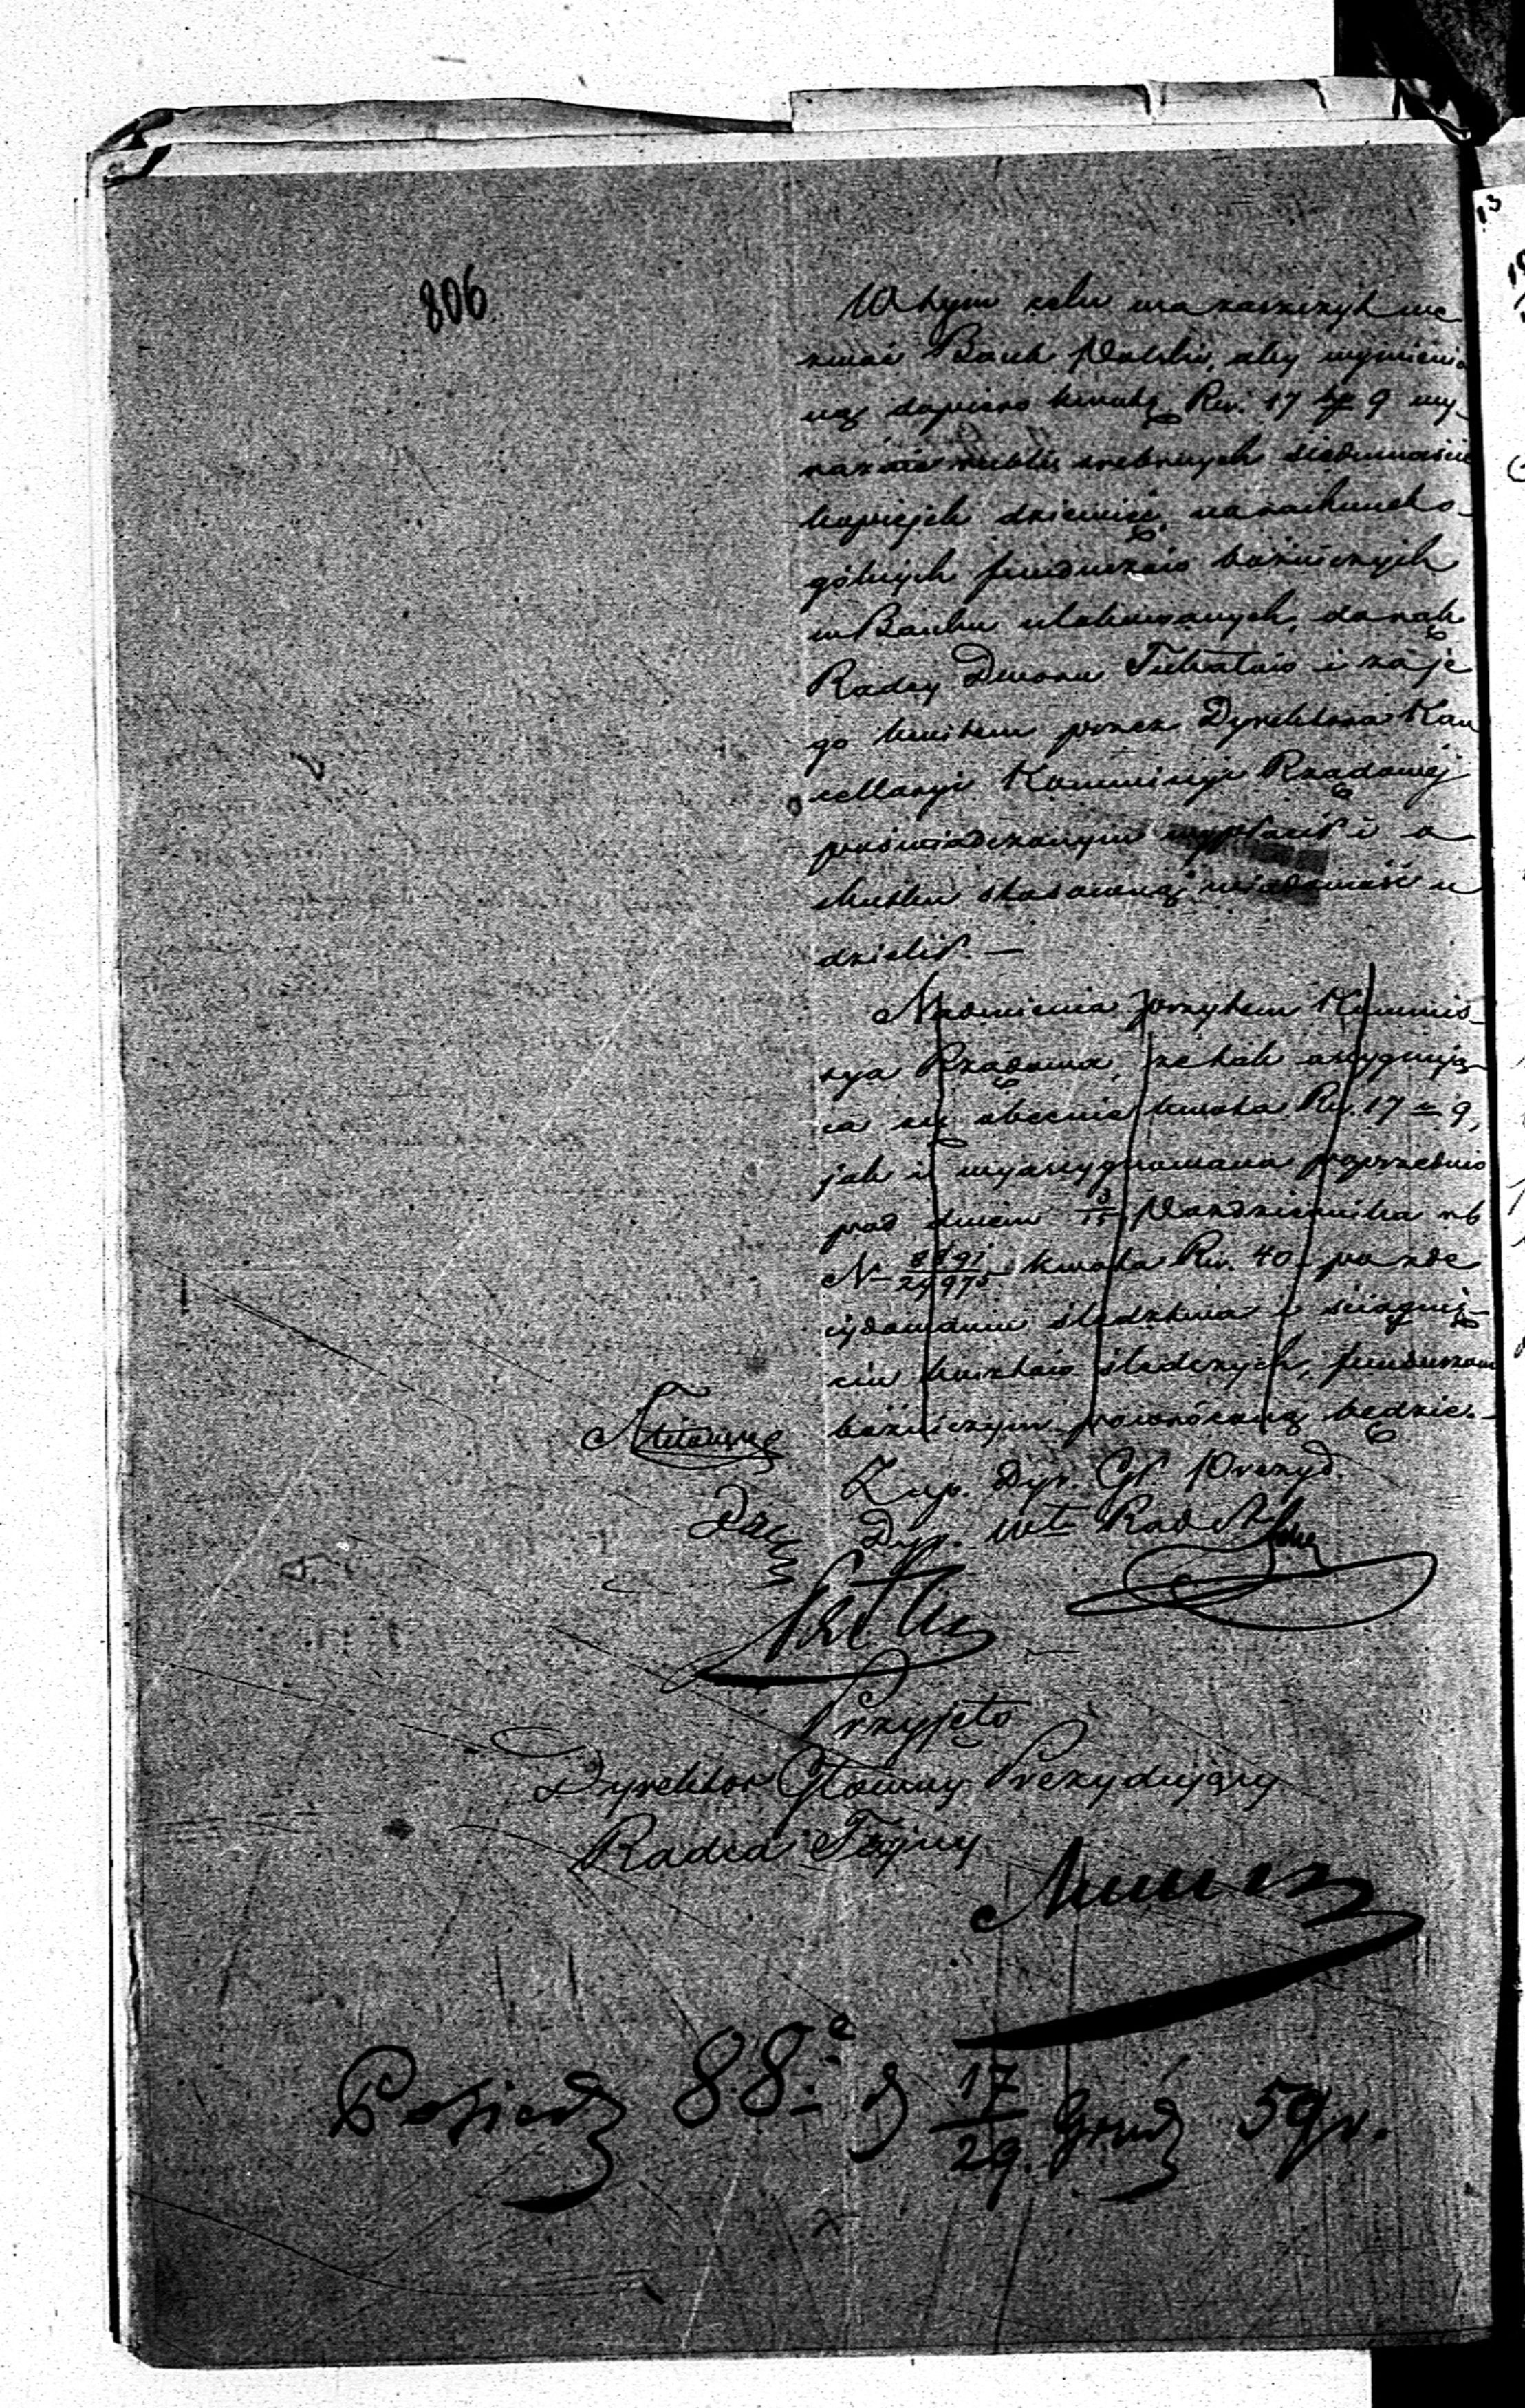 806.
W tym celu ma zaszczyt we
zwać Bank Polski, aby wymienio
ną dopiero kwotę Rs. 17 kop 9 wy-
raźnie rubli srebrnych siedmnaście
kopiejek dziewięć, na rachunek o-
gólnych funduszów bóżniczych
w Banku ulokowanych, do rąk
Radcy Dworu Tukałło i za je
go kwitem przez Dyrektora Kan
cellaryi Kommissyi Rządowej
poświadczonym wypłacił i o
skutku stosowną wiadomość u
dzielił. —
Nadmienia przytem Kommis-
sya Rządowa, że tak assygnują-
ca się obecnie kwota Rs. 17 k 9,
jak i wyassygnowana poprzednio
pod dniem 3/15 Października rb
N 8891/24975 kwota Rs. 40 po zde
cydowaniu śledztwa i ściągnię-
ciu kosztów śledczych, funduszom
bóżniczym powróconą będzie.-
Zup. Dyr. Gł. Prezyd.
Dyr. Wł. Rad St
Przyjęto
Dyrektor Główny Prezydujący
Radca Tajny
Posiedz 88. d 17/29. Grud 59 r.